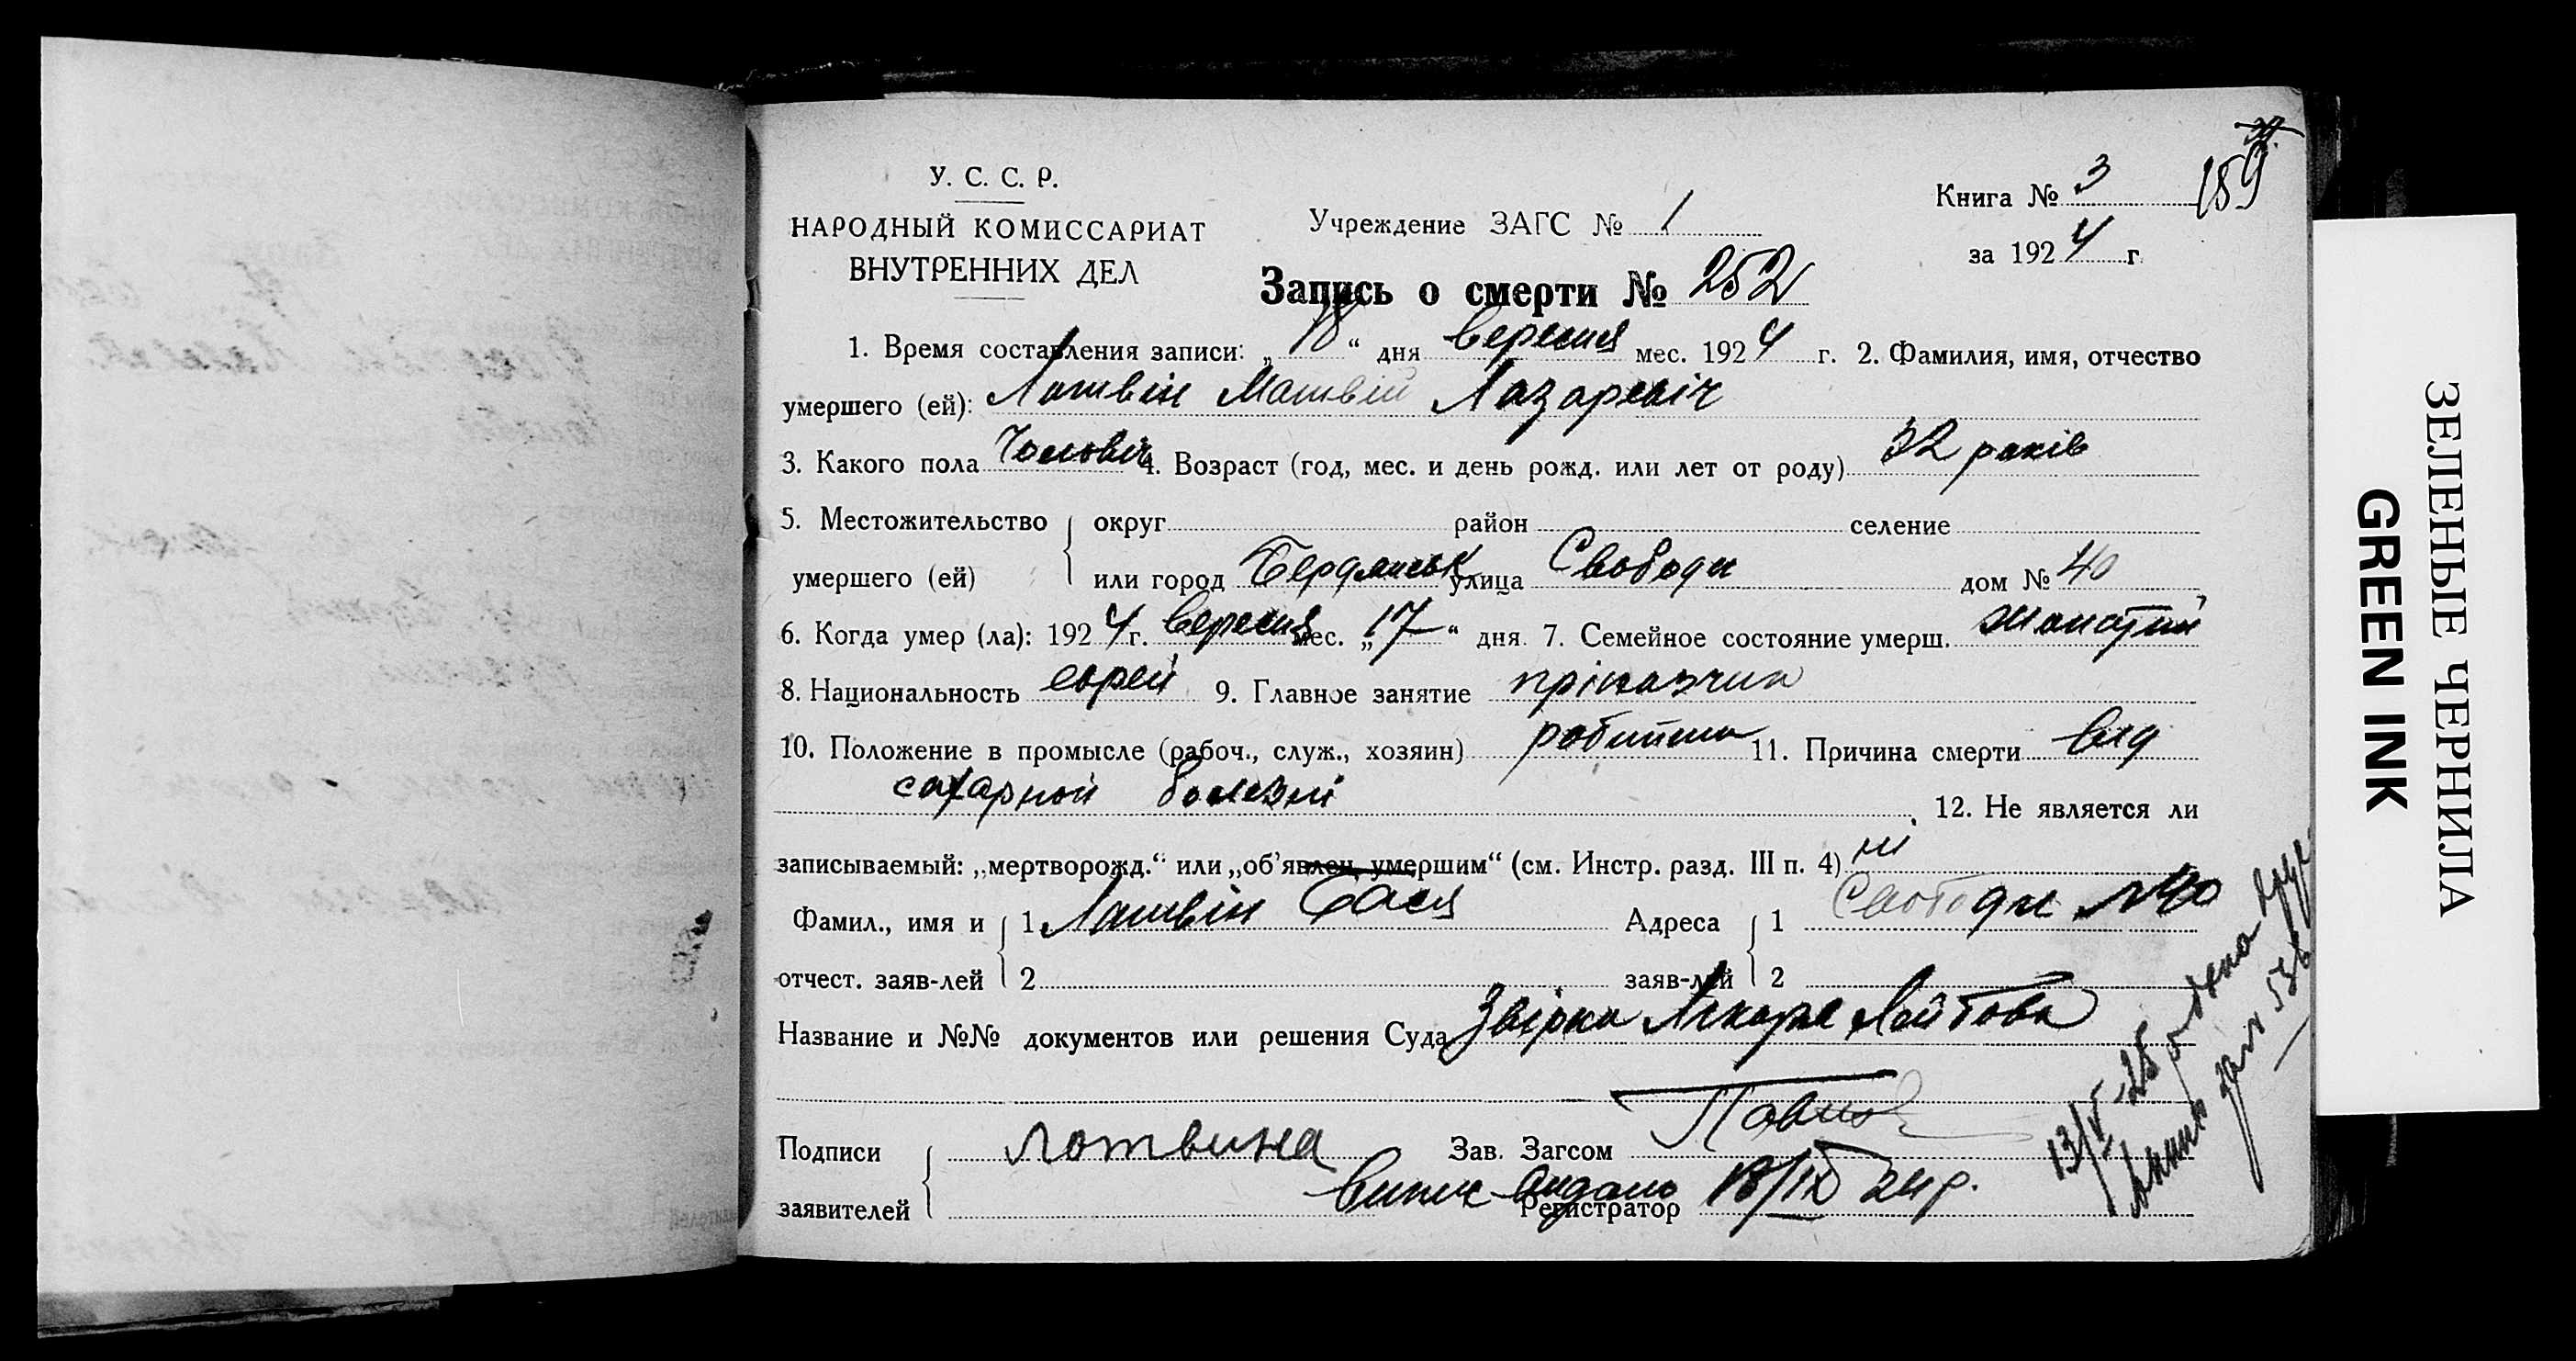 189
У. С. С. Р.
НАРОДНЫЙ КОМИССАРИАТ
ВНУТРЕННИХ ДЕЛ
Учреждение ЗАГС № 1
Книга № 3
за 1924 г.
Запись о смерти № 252
1. Время составления записи: „18“ дня вересня мес. 1924 г. 2. Фамилия, имя, отчество
умершего (ей): Лотвін Матвій Лазаревіч
3. Какого пола Чоловіч 4. Возраст (год, мес. и день рожд. или лет от роду) 32 років
5. Местожительство округ район селение
умершего (ей) или город Бердянськ улица Свободи дом № 40
6. Когда умер (ла): 1924 г. вересня мес. „17“ дня. 7. Семейное состояние умерш. жонатий
8. Национальность еврей 9. Главное занятие пріказчик
10. Положение в промысле (рабоч., служ., хозяин) 11. Причина смерти від
сахарной болезні 12. Не является ли
записываемый: „мертворожд.“ или „об'явлен, умершим“ (см. Инстр. разд. III п. 4) ні
Фамил., имя и 1 Лотвін Бася Адреса 1 Свободи №40
отчест. заяв-лей 2 заяв-лей 2
Название и №№ документов или решения Суда Лікаря
Подписи Лотвина Зав. Загсом
заявителей Випис видано Регистратор 18/IX 24 р.
13/V-28
ЗЕЛЕНЫЕ ЧЕРНИЛА
GREEN INK